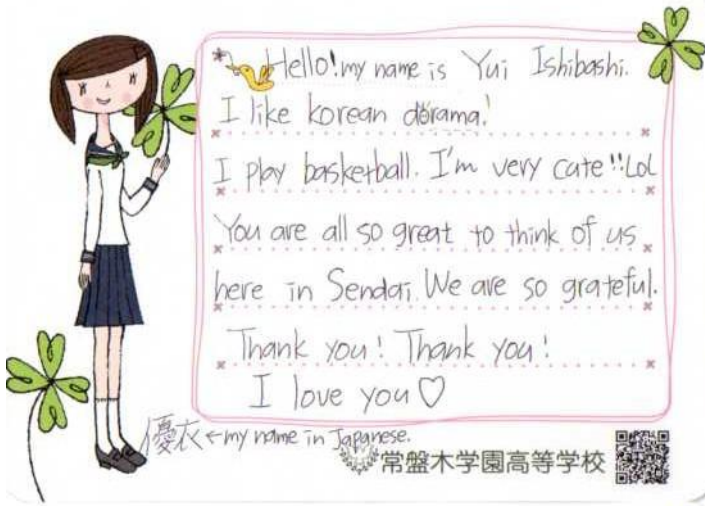 Hello! my name is Yui Ishibashi.
I like korean dorama!
I play basketball. I'm very cute!! LoL
You are all so great to think of us
here in Sendai. We are so grateful.
Thank you! Thank you!
I love you♡
優衣←my name in Japanese.
常盤木学園高等学校